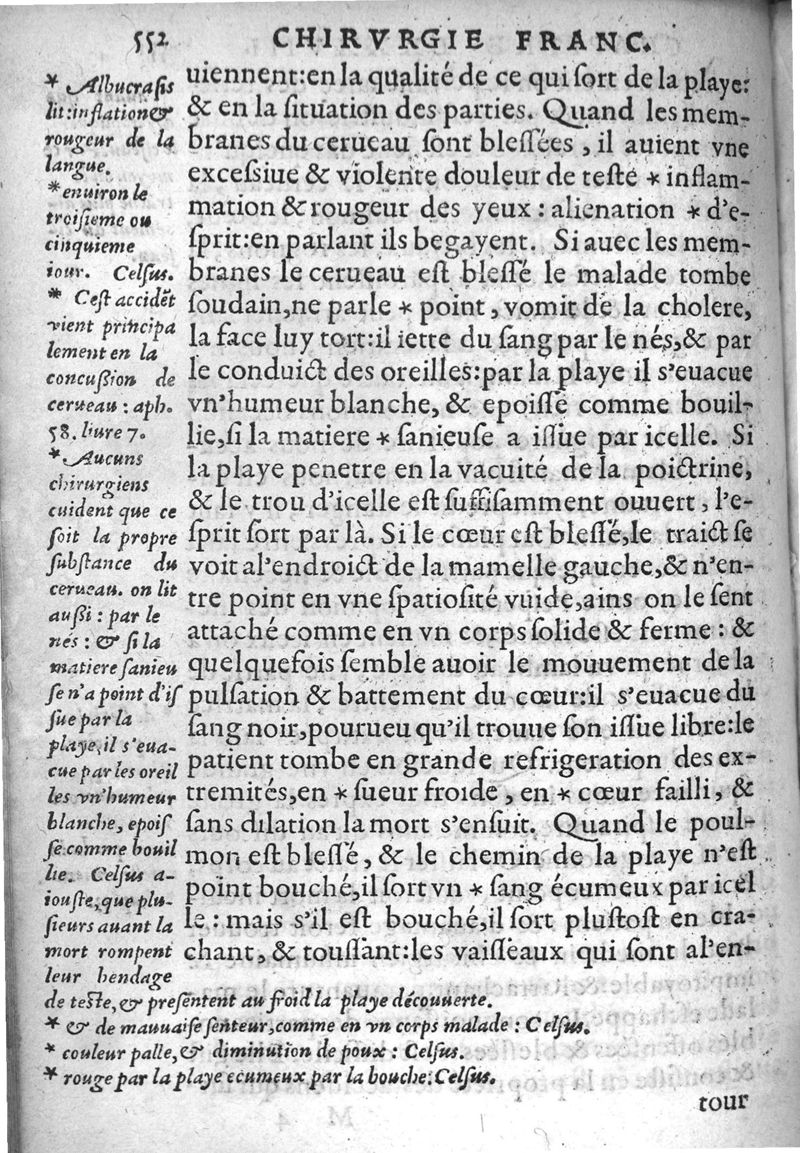 552 CHIRVRGIE FRANC.
uiennent:en la qualité de ce qui ſort de la playe:
& en la ſituation des parties. Quand les mem-
branes du cerueau ſont bleſſées , il auient vne
exceſsiue & violente douleur de teſte * inflam-
mation & rougeur des yeux : alienation * d'e-
ſprit:en parlant ils begayent. Si auec les mem-
branes le cerueau eſt bleſſé le malade tombe
ſoudain,ne parle * point , vomit de la cholere,
la face luy tort:il iette du ſang par le nés,& par
le conduict des oreilles:par la playe il s'euacue
vn'humeur blanche, & epoiſſe comme bouil-
lie,ſi la matiere * ſanieuſe a iſſue par icelle. Si
la playe penetre en la vacuité de la poictrine,
& le trou d'icelle eſt ſuffiſamment ouuert , l'e-
ſprit ſort par là. Si le cœur eſt bleſſé,le traict ſe
voit al'endroict de la mamelle gauche,& n'en-
tre point en vne ſpatioſité vuide,ains on le ſent
attaché comme en vn corps ſolide & ferme : &
quelquefois ſemble auoir le mouuement de la
pulſation & battement du cœur:il s'euacue du
ſang noir,pourueu qu'il trouue ſon iſſue libre:le
patient tombe en grande refrigeration des ex-
tremités,en * ſueur froide , en * cœur failli , &
ſans dilation la mort s'enſuit. Quand le poul-
mon eſt bleſſé , & le chemin de la playe n'eſt
point bouché,il ſort vn * ſang écumeux par icel
le : mais s'il eſt bouché,il ſort pluſtoſt en cra-
chant , & touſſant:les vaiſſeaux qui ſont al'en-
* Albucraſis
lit:inflation &
rougeur de la
langue.
* enuiron le
troiſieme ou
cinquieme
iour. Celſus.
* Ceſt accidēt
vient principa
lement en la
concuſsion de
cerueau : aph.
58. liure 7.
* Aucuns
chirurgiens
cuident que ce
ſoit la propre
ſubſtance du
cerueau. on lit
auſsi : par le
nés : & ſi la
matiere ſanieu
ſe n'a point d'iſ
ſue par la
playe,il s'eua-
cue par les oreil
les vn'humeur
blanche, epoiſ
ſe comme bouil
lie. Celſus a-
iouſte,que plu-
ſieurs auant la
mort rompent
leur bendage
de teſte, & preſentent au froid la playe découuerte.
* & de mauuaiſe ſenteur,comme en vn corps malade : Celſus.
* couleur palle, & diminution de poux : Celſus.
* rouge par la playe ecumeux par la bouche: Celſus.
tour